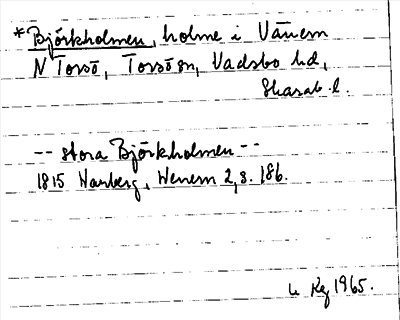 *Björkholmen, holme i Vänern
N Torsö, Torsö sn, Vadsbo hd,
Skarab. l.
-- stora Björkholmen --
1815 Warberg, Wenern 2, s. 186.
1965.